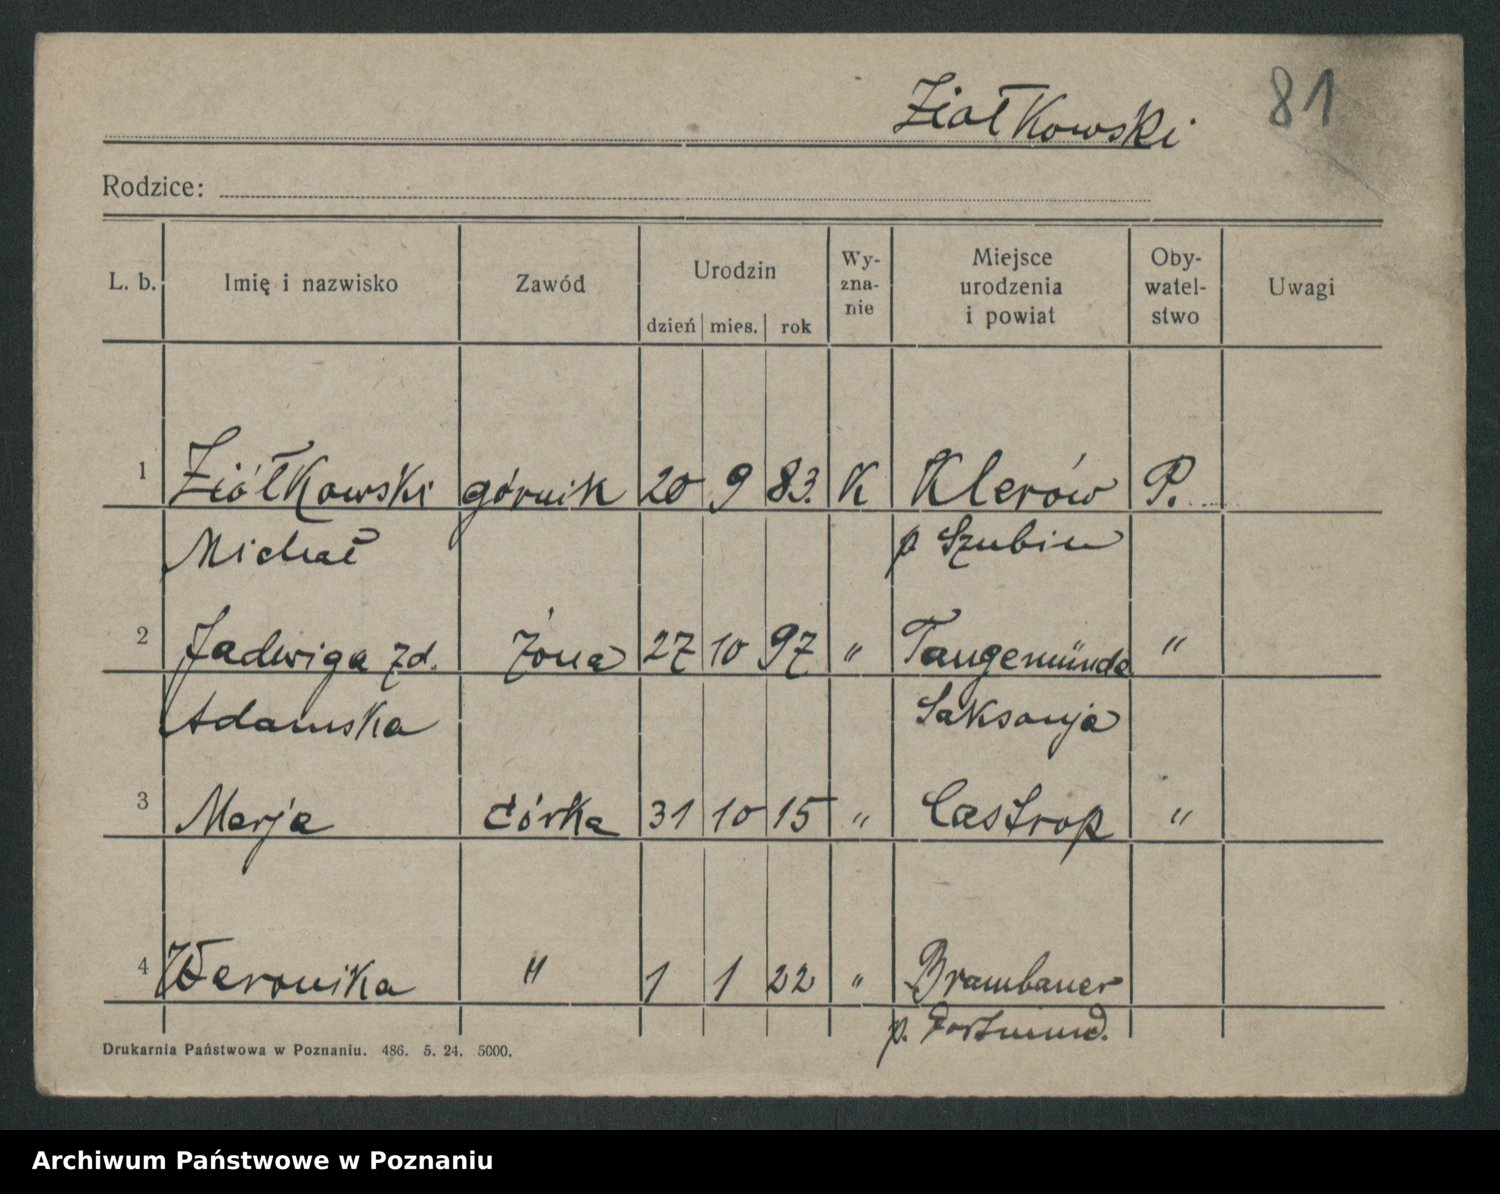 Ziołkowski 81
Rodzice:
L. b. Imię i nazwisko Zawód Urodzin Wy-zna-nie Miejsce urodzenia i powiat Oby-watel-stwo Uwagi
dzień mies. rok
1 Ziółkowski górnik 20 9 83. K Klerów P.
Michał p Szubin
2 Jadwiga zd. żona 27 10 97 " Tangemünde "
Adamska Saksonja
3 Marja córka 31 10 15 " Castrop "
4 Weronika " 1 1 22 " Brambauer
p. Dortmund.
Drukarnia Państwowa w Poznaniu. 486. 5. 24. 5000.
Archiwum Państwowe w Poznaniu